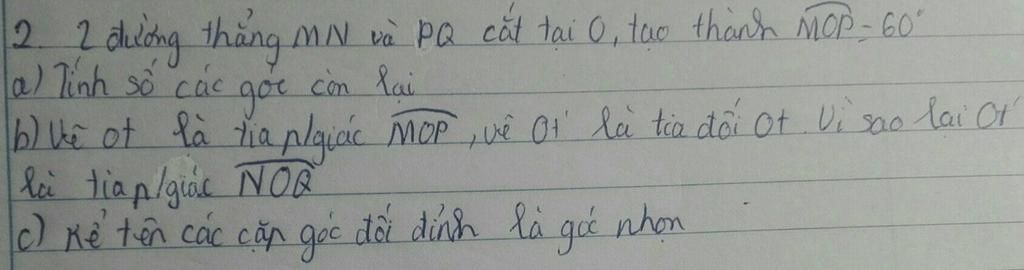 2. 2 đường thẳng MN và PQ cắt tại O, tạo thành MOP = 60°
a) Tính số các góc còn lại
b) Vẽ Ot là tia p/giác MOP, vẽ Ot' là tia đối Ot. Vì sao lại Ot'
là tia p/giác NOQ
c) Kể tên các cặp góc đối đỉnh là góc nhọn